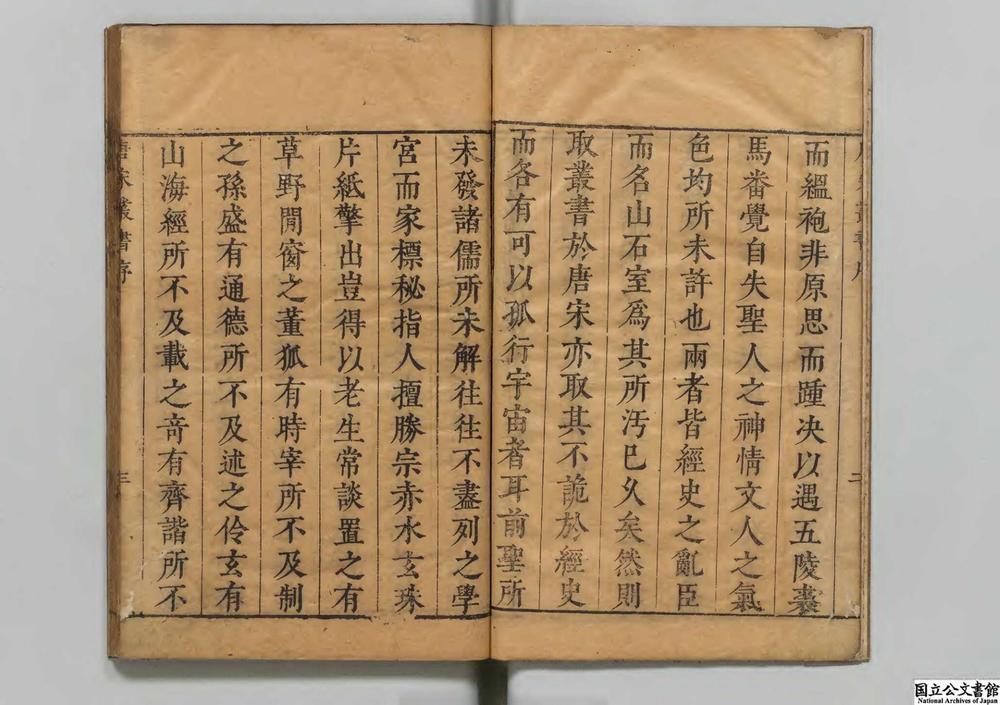 而縕袍非原思而踵決以遇五陵裘
馬畨覺自失聖人之神情文人之氣
色均所未許也兩者皆經史之亂臣
而名山石室爲其所汚已久矣然則
取叢書於唐宋亦取其不詭於經史
而各有可以孤行宇宙者耳前聖所
未發諸儒所未解往往不盡列之學
宮而家標秘指人擅勝宗赤水玄珠
片紙擎出豈得以老生常談置之有
草野閒窗之董狐有時宰所不及制
之孫盛有通德所不及述之伶玄有
山海經所不及載之奇有齊諧所不
唐宋叢書序
三
国立公文書館
National Archives of Japan